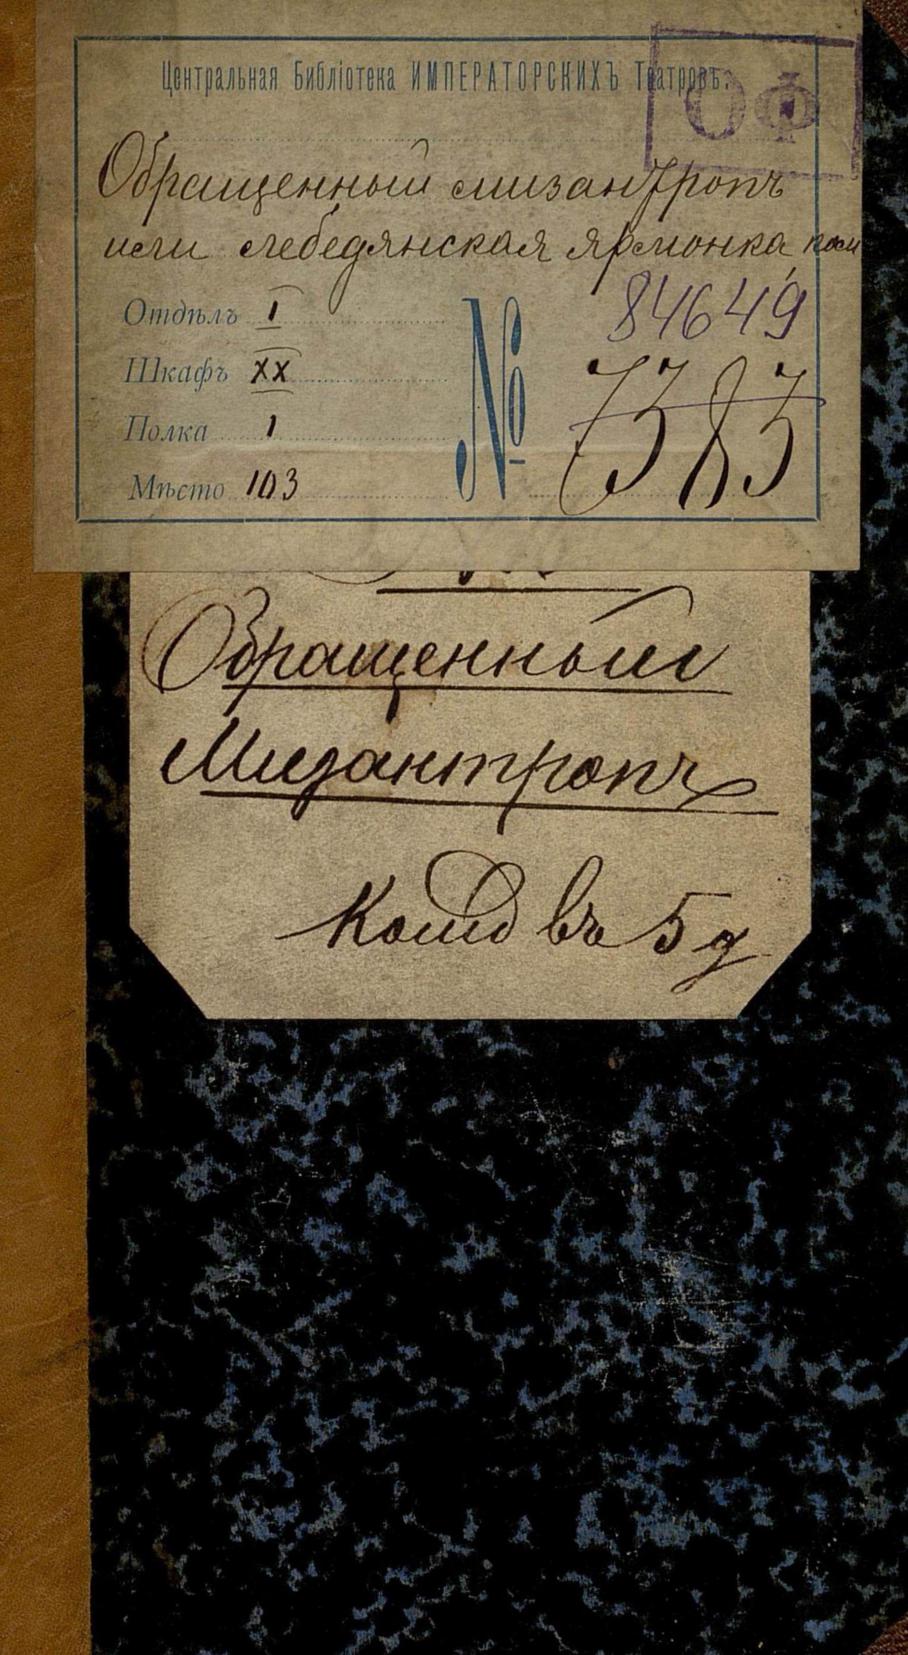 Центральная Библіотека ИМПЕРАТОРСКИХЪ Театровъ.
ОФ
Обращенный мизантропъ
или лебедянская ярмонка ком
84649
Отдѣлъ I
Шкафъ XX
Полка 1
Мѣсто 103
№ 7383
Обращенный
Мизантропъ
Комд въ 5 д